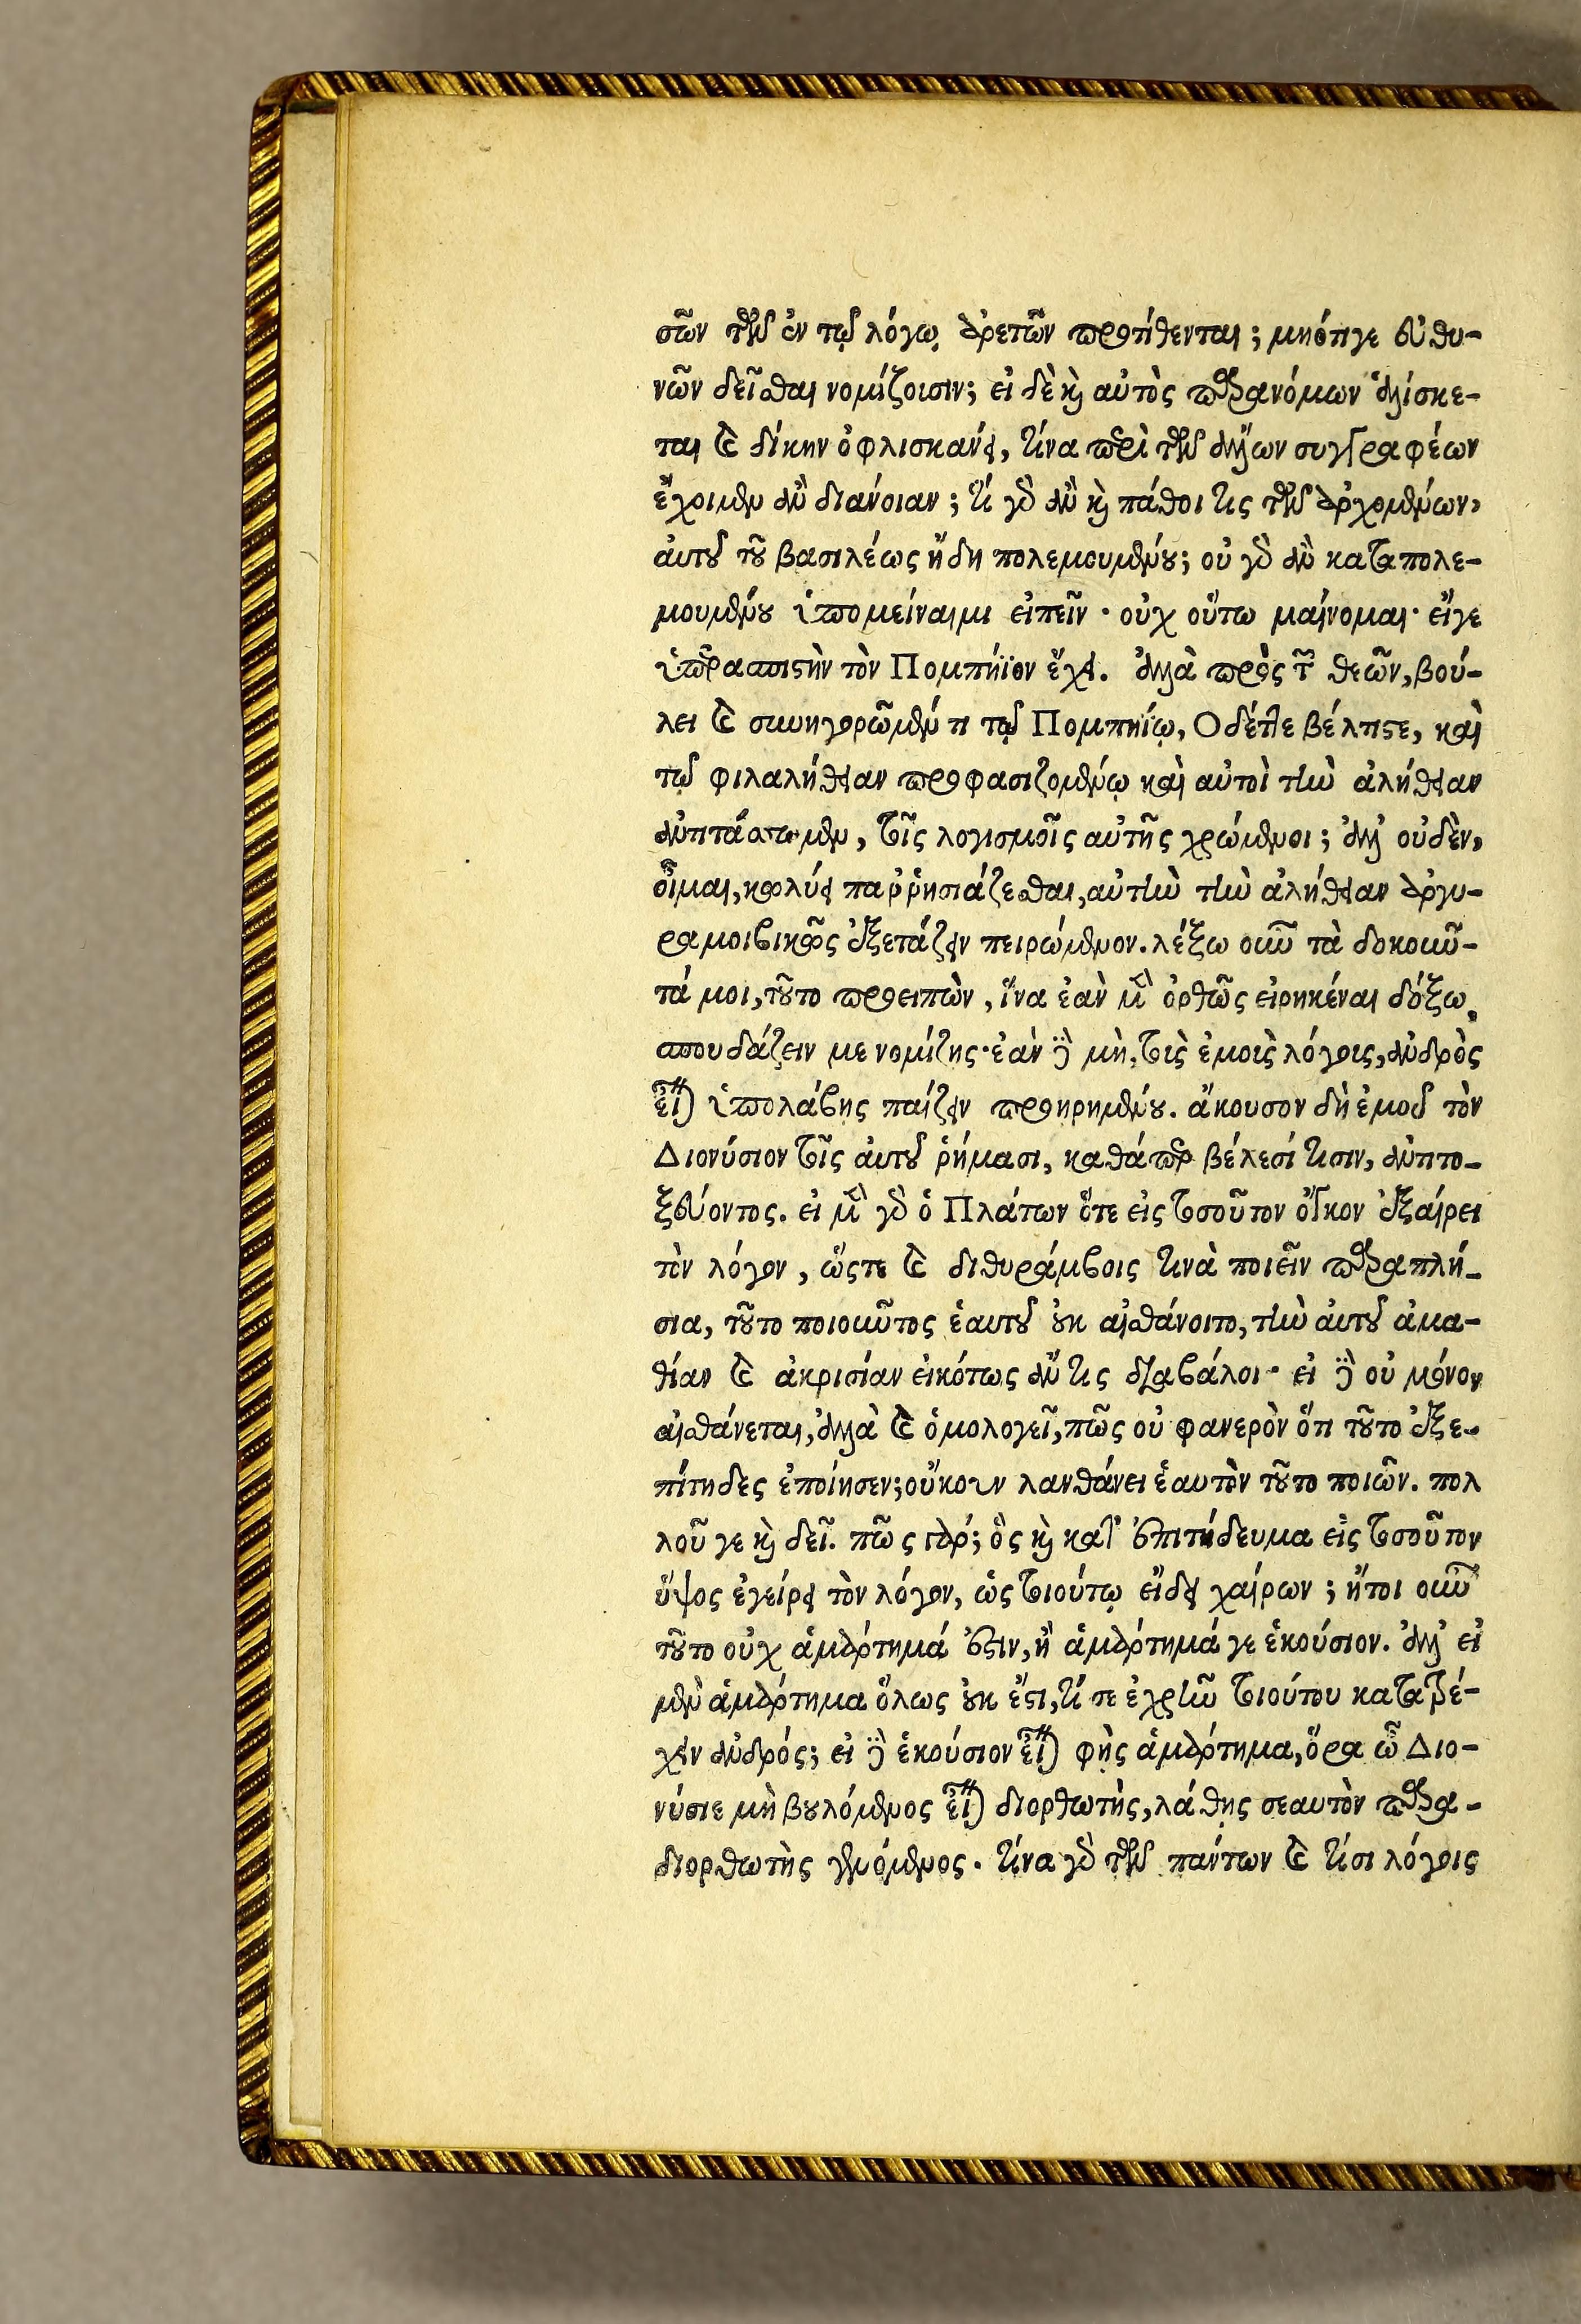 σῶν τῶν ἐν τῷ λόγῳ ἀρετῶν προτίθενται; μηότιγε εὐθυ-
νῶν δεῖσθαι νομίζοισιν; εἰ δὲ καὶ αὐτὸς παρανόμων ἁλίσκε-
ται καὶ δίκην ὀφλισκάνει, τίνα περὶ τῶν ἄλλων συγγραφέων
ἔχοιμεν ἂν διάνοιαν; τί γὰρ ἂν καὶ πάθοι τις τῶν ἀρχομένων,
αὐτοῦ τοῦ βασιλέως ἤδη πολεμουμένου; οὐ γὰρ ἂν καταπολε-
μουμένου ὑπομείναιμι εἰπεῖν· οὐχ οὕτω μαίνομαι· εἴγε
ὑπερασπιστὴν τὸν Πομπήϊον ἔχει. ἀλλὰ πρὸς τῶν θεῶν, βού-
λει καὶ συνηγορῶμέν τι τῷ Πομπηίῳ, Οδέττε βέλτιστε, καὶ
τῷ φιλαλήθειαν προφασιζομένῳ καὶ αὐτοὶ τὴν ἀλήθειαν
ἀντιτάσσωμεν, τοῖς λογισμοῖς αὐτῆς χρώμενοι; ἀλλ' οὐδὲν,
οἶμαι, κωλύει παῤῥησιάζεσθαι, αὐτὴν τὴν ἀλήθειαν ἀργυ-
ραμοιβικῶς ἐξετάζειν πειρώμενον. λέξω οὖν τὰ δοκοῦν-
τά μοι, τοῦτο προειπὼν, ἵνα ἐὰν μὲν ὀρθῶς εἰρηκέναι δόξω,
σπουδάζειν με νομίζης· ἐὰν δὲ μὴ, τοὶς ἐμοὶς λόγοις, ἀνδρὸς
εἶναι ὑπολάβης παίζειν προῃρημένου. ἄκουσον δὴ ἐμοῦ τὸν
Διονύσιον τοῖς αὐτοῦ ῥήμασι, καθάπερ βέλεσί τισιν, ἀντιτο-
ξεύοντος. εἰ μὲν γὰρ ὁ Πλάτων ὅτε εἰς τοσοῦτον ὄγκον ἐξαίρει
τὸν λόγον, ὥστε καὶ διθυράμβοις τινὰ ποιεῖν παραπλή-
σια, τοῦτο ποιοῦντος ἑαυτοῦ οὐκ αἰσθάνοιτο, τὴν αὐτοῦ ἀμα-
θίαν καὶ ἀκρισίαν εἰκότως ἄν τις διαβάλοι· εἰ δὲ οὐ μόνον
αἰσθάνεται, ἀλλὰ καὶ ὁμολογεῖ, πῶς οὐ φανερὸν ὅτι τοῦτο ἐξε-
πίτηδες ἐποίησεν; οὔκουν λανθάνει ἑαυτὸν τοῦτο ποιῶν. πολ
λοῦ γε καὶ δεῖ. πῶς γάρ; ὃς καὶ κατ' ἐπιτήδευμα εἰς τοσοῦτον
ὕψος ἐγείρει τὸν λόγον, ὡς τοιούτῳ εἴδει χαίρων; ἤτοι οὖν
τοῦτο οὐχ ἁμάρτημά ἐστιν, ἢ ἁμάρτημά γε ἑκούσιον. ἀλλ' εἰ
μὲν ἁμάρτημα ὅλως οὐκ ἔστι, τί σε ἐχρῆν τοιούτου κατατρέ-
χειν ἀνδρός; εἰ δὲ ἑκούσιον εἶναι φὴς ἁμάρτημα, ὅρα ὦ Διο-
νύσιε μὴ βουλόμενος εἶναι διορθωτὴς, λάθης σεαυτὸν παρα-
διορθωτὴς γενόμενος. τίνα γὰρ τῶν πάντων καὶ τίσι λόγοις